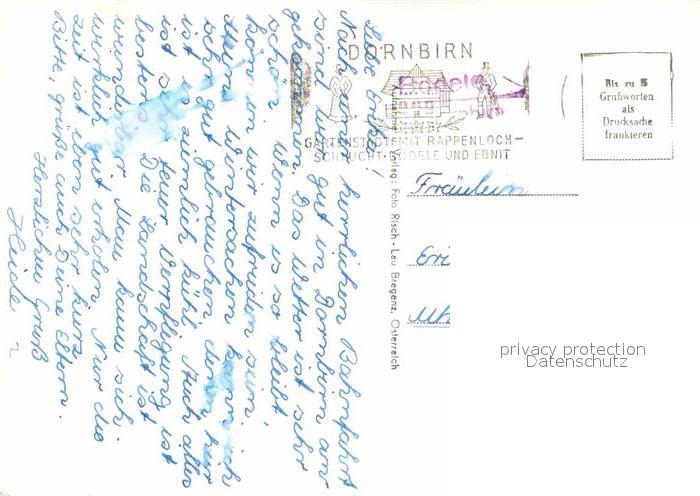 Liebe
Nach einer herrlichen Bahnfahrt
sind wir gut in Dornbirn an-
gekommen. Das Wetter ist sehr
schön. Wenn es so bleibt,
können wir zufrieden sein.
Meine Wintersachen kann ich
sehr gut gebrauchen denn hier
ist es ziemlich kühl. Auch alles
ist sehr teuer Verpflegung ist
bestens. Die Landschaft ist
wunderbar Man kann sich
wirklich gut erholen. Nur die
Zeit ist eben sehr kurz.
Bitte, grüße auch Deine Eltern.
Herzlichen Gruß
Heide
DORNBIRN
Bödele
GARTENSTADT MIT RAPPENLOCH-
SCHLUCHT·BÖDELE UND EBNIT
Bis zu 5
Grußworten
als
Drucksache
frankieren
Verlag: Foto Risch-Lau Bregenz, Österreich
Fräulein
Eri
privacy protection
Datenschutz